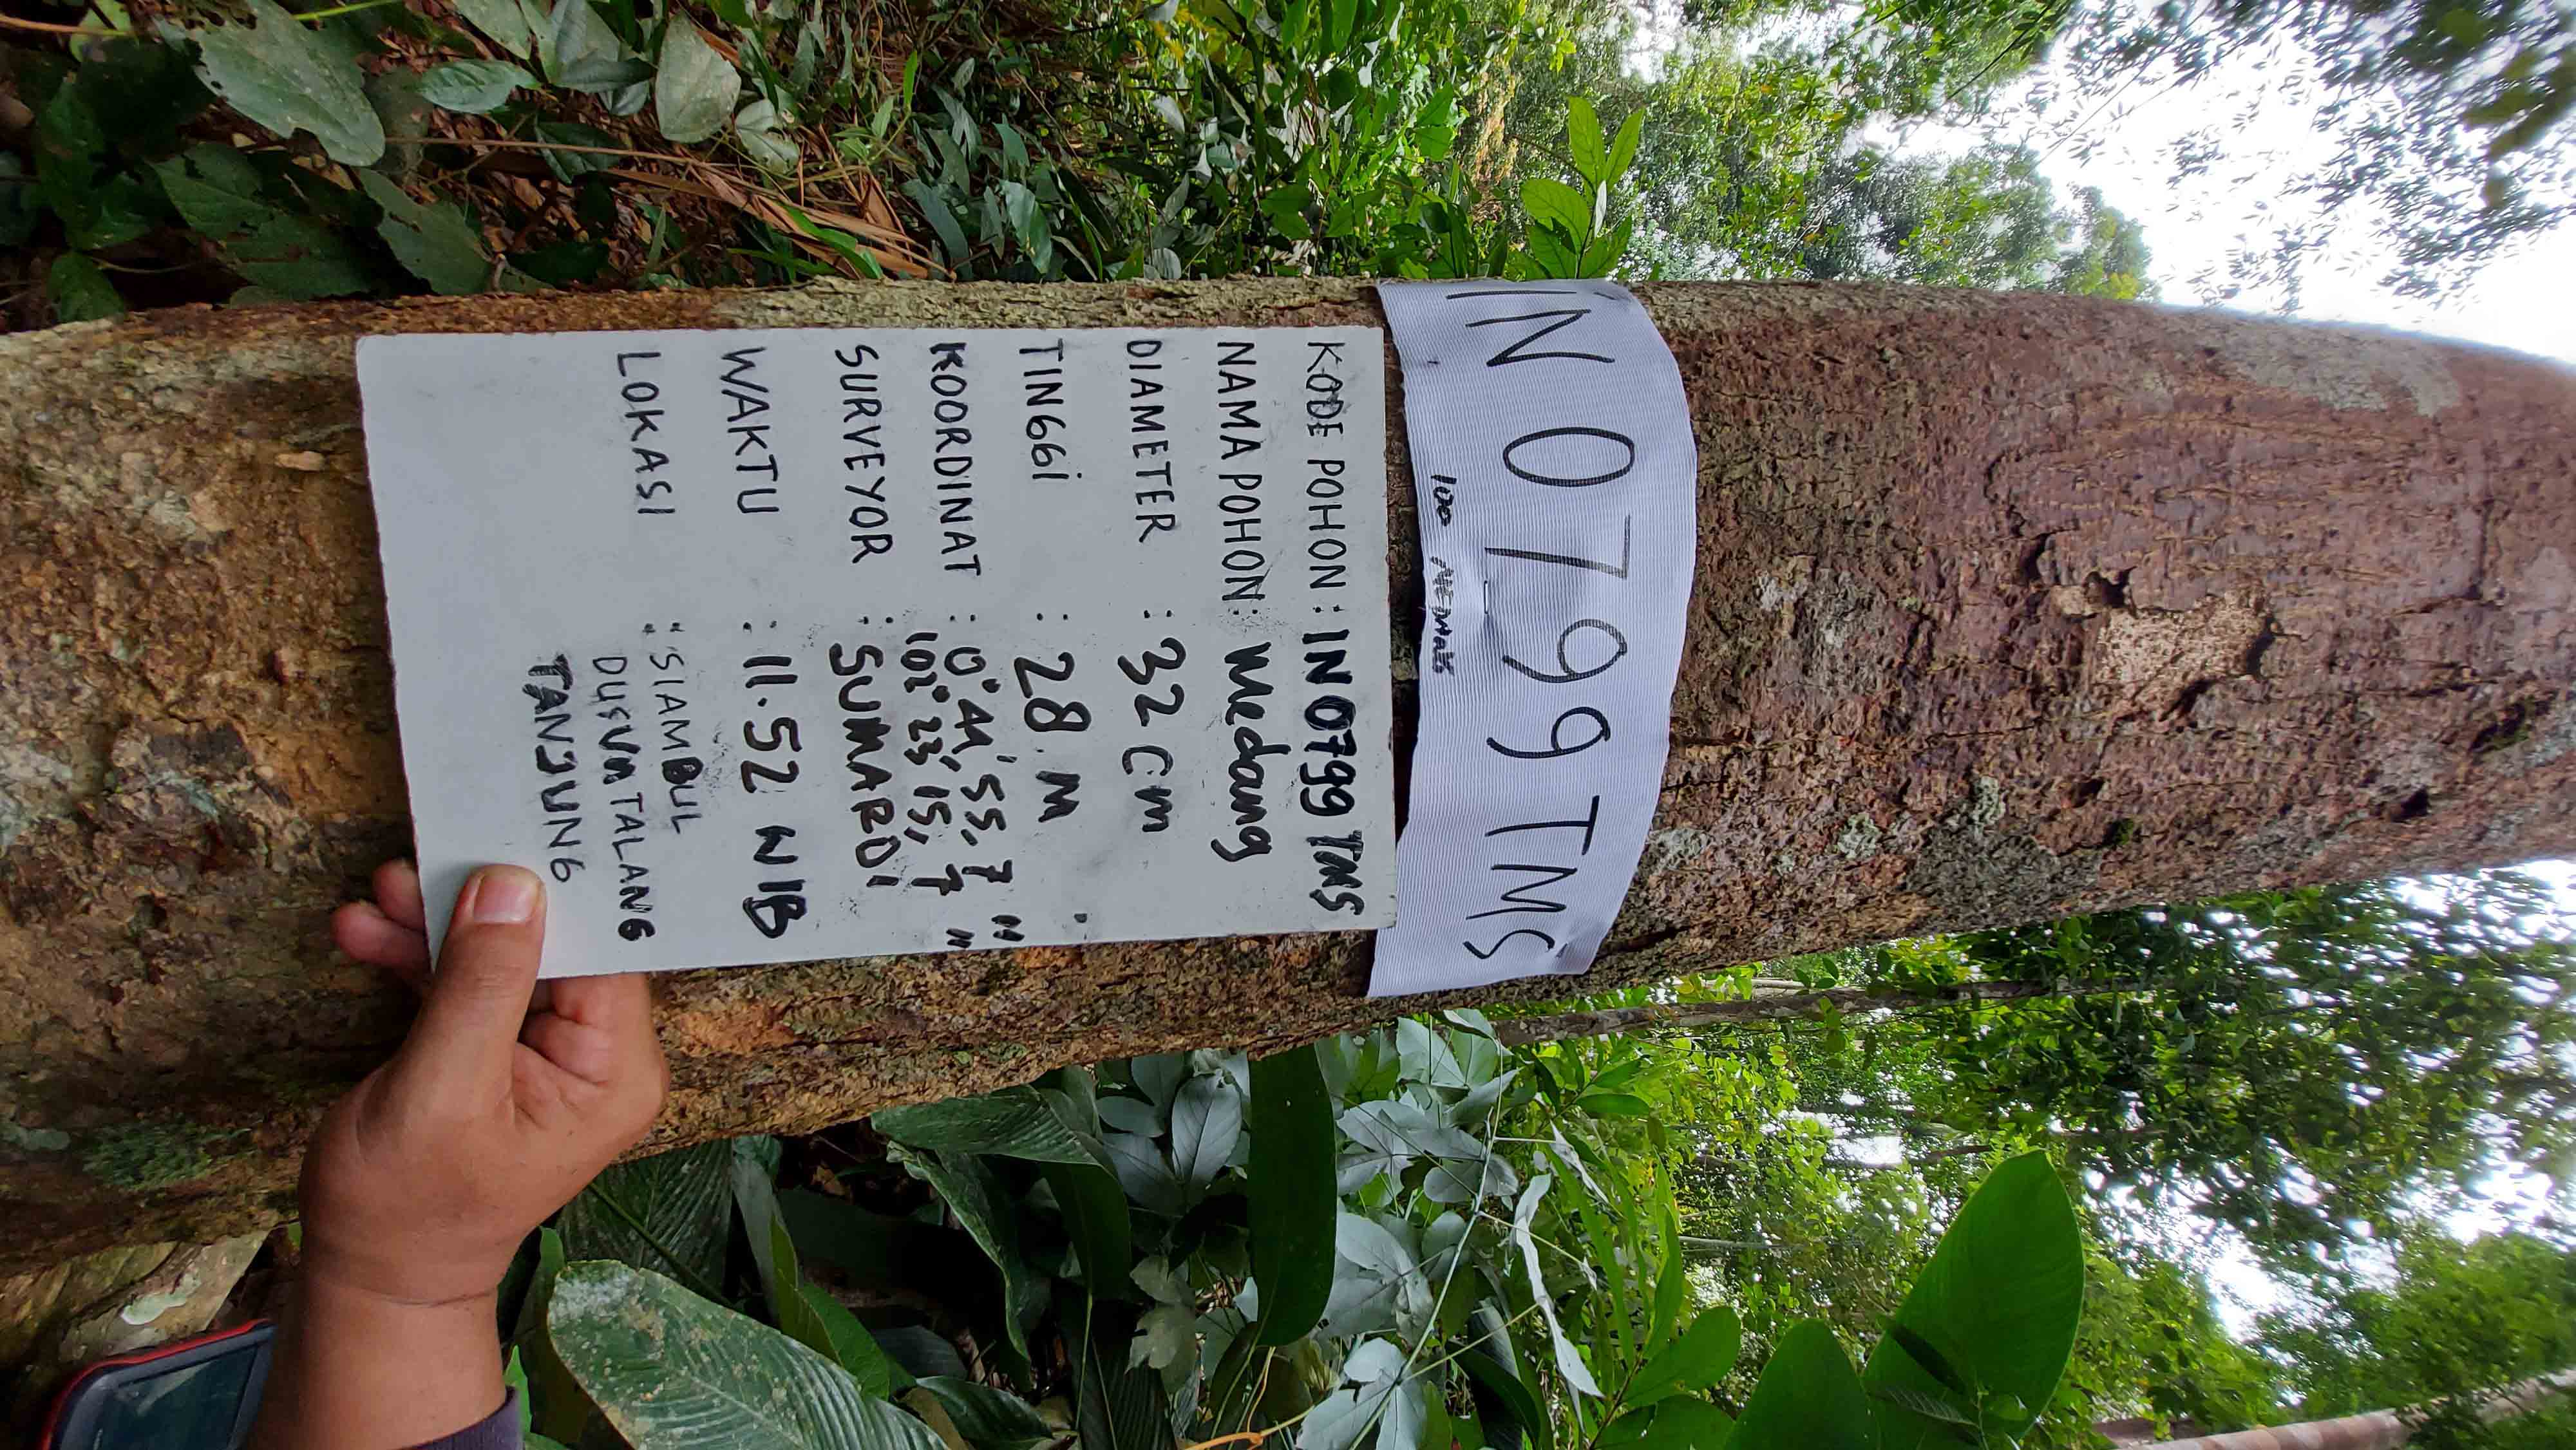 IN 0799 TMS
100
KODE POHON : IN 0799 TMS
NAMA POHON : Medang
DIAMETER : 32 cm
TINGGi : 28 m
KOORDINAT : 0° 44' 55,7"
102° 23' 15,7"
SURVEYOR : SUMARDI
WAKTU : 11.52 WIB
LOKASI : SIAMBUL
DUSUN TALANG
TANJUNG